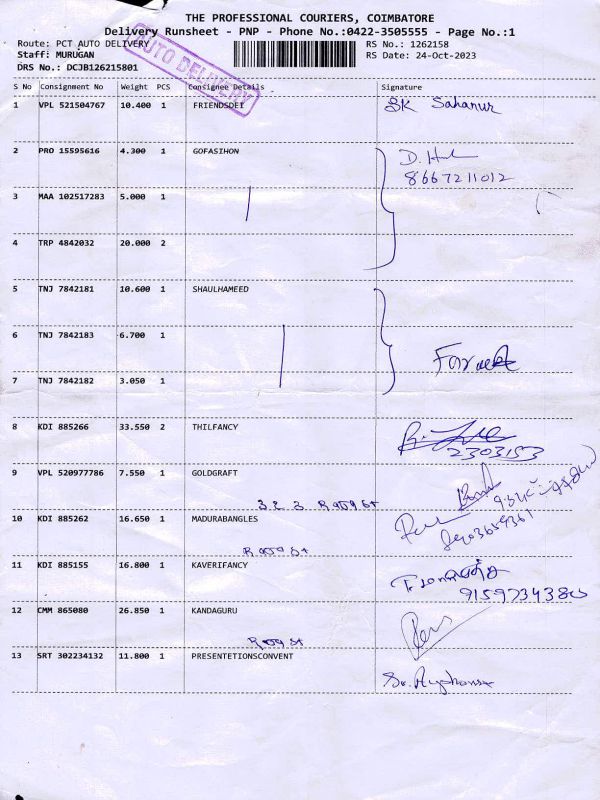 THE PROFESSIONAL COURIERS, COIMBATORE
Delivery Runsheet - PNP - Phone No.:0422-3505555 - Page No.:1
Route: PCT AUTO DELIVERY RS No.: 1262158
Staff: MURUGAN RS Date: 24-Oct-2023
DRS No.: DCJB126215801
AUTO DELIVERY
S No Consignment No Weight PCS Consignee Details Signature
1 VPL 521504767 10.400 1 FRIENDSDEI SK Sahanur
2 PRO 15595616 4.300 1 GOFASIHON
8667211012
3 MAA 102517283 5.000 1
4 TRP 4842032 20.000 2
5 TNJ 7842181 10.600 1 SHAULHAMEED
6 TNJ 7842183 6.700 1
7 TNJ 7842182 3.050 1
8 KDI 885266 33.550 2 THILFANCY
2303153
9 VPL 520977786 7.550 1 GOLDGRAFT
10 KDI 885262 16.650 1 MADURABANGLES
11 KDI 885155 16.800 1 KAVERIFANCY
12 CMM 865080 26.850 1 KANDAGURU
13 SRT 302234132 11.800 1 PRESENTETIONSCONVENT